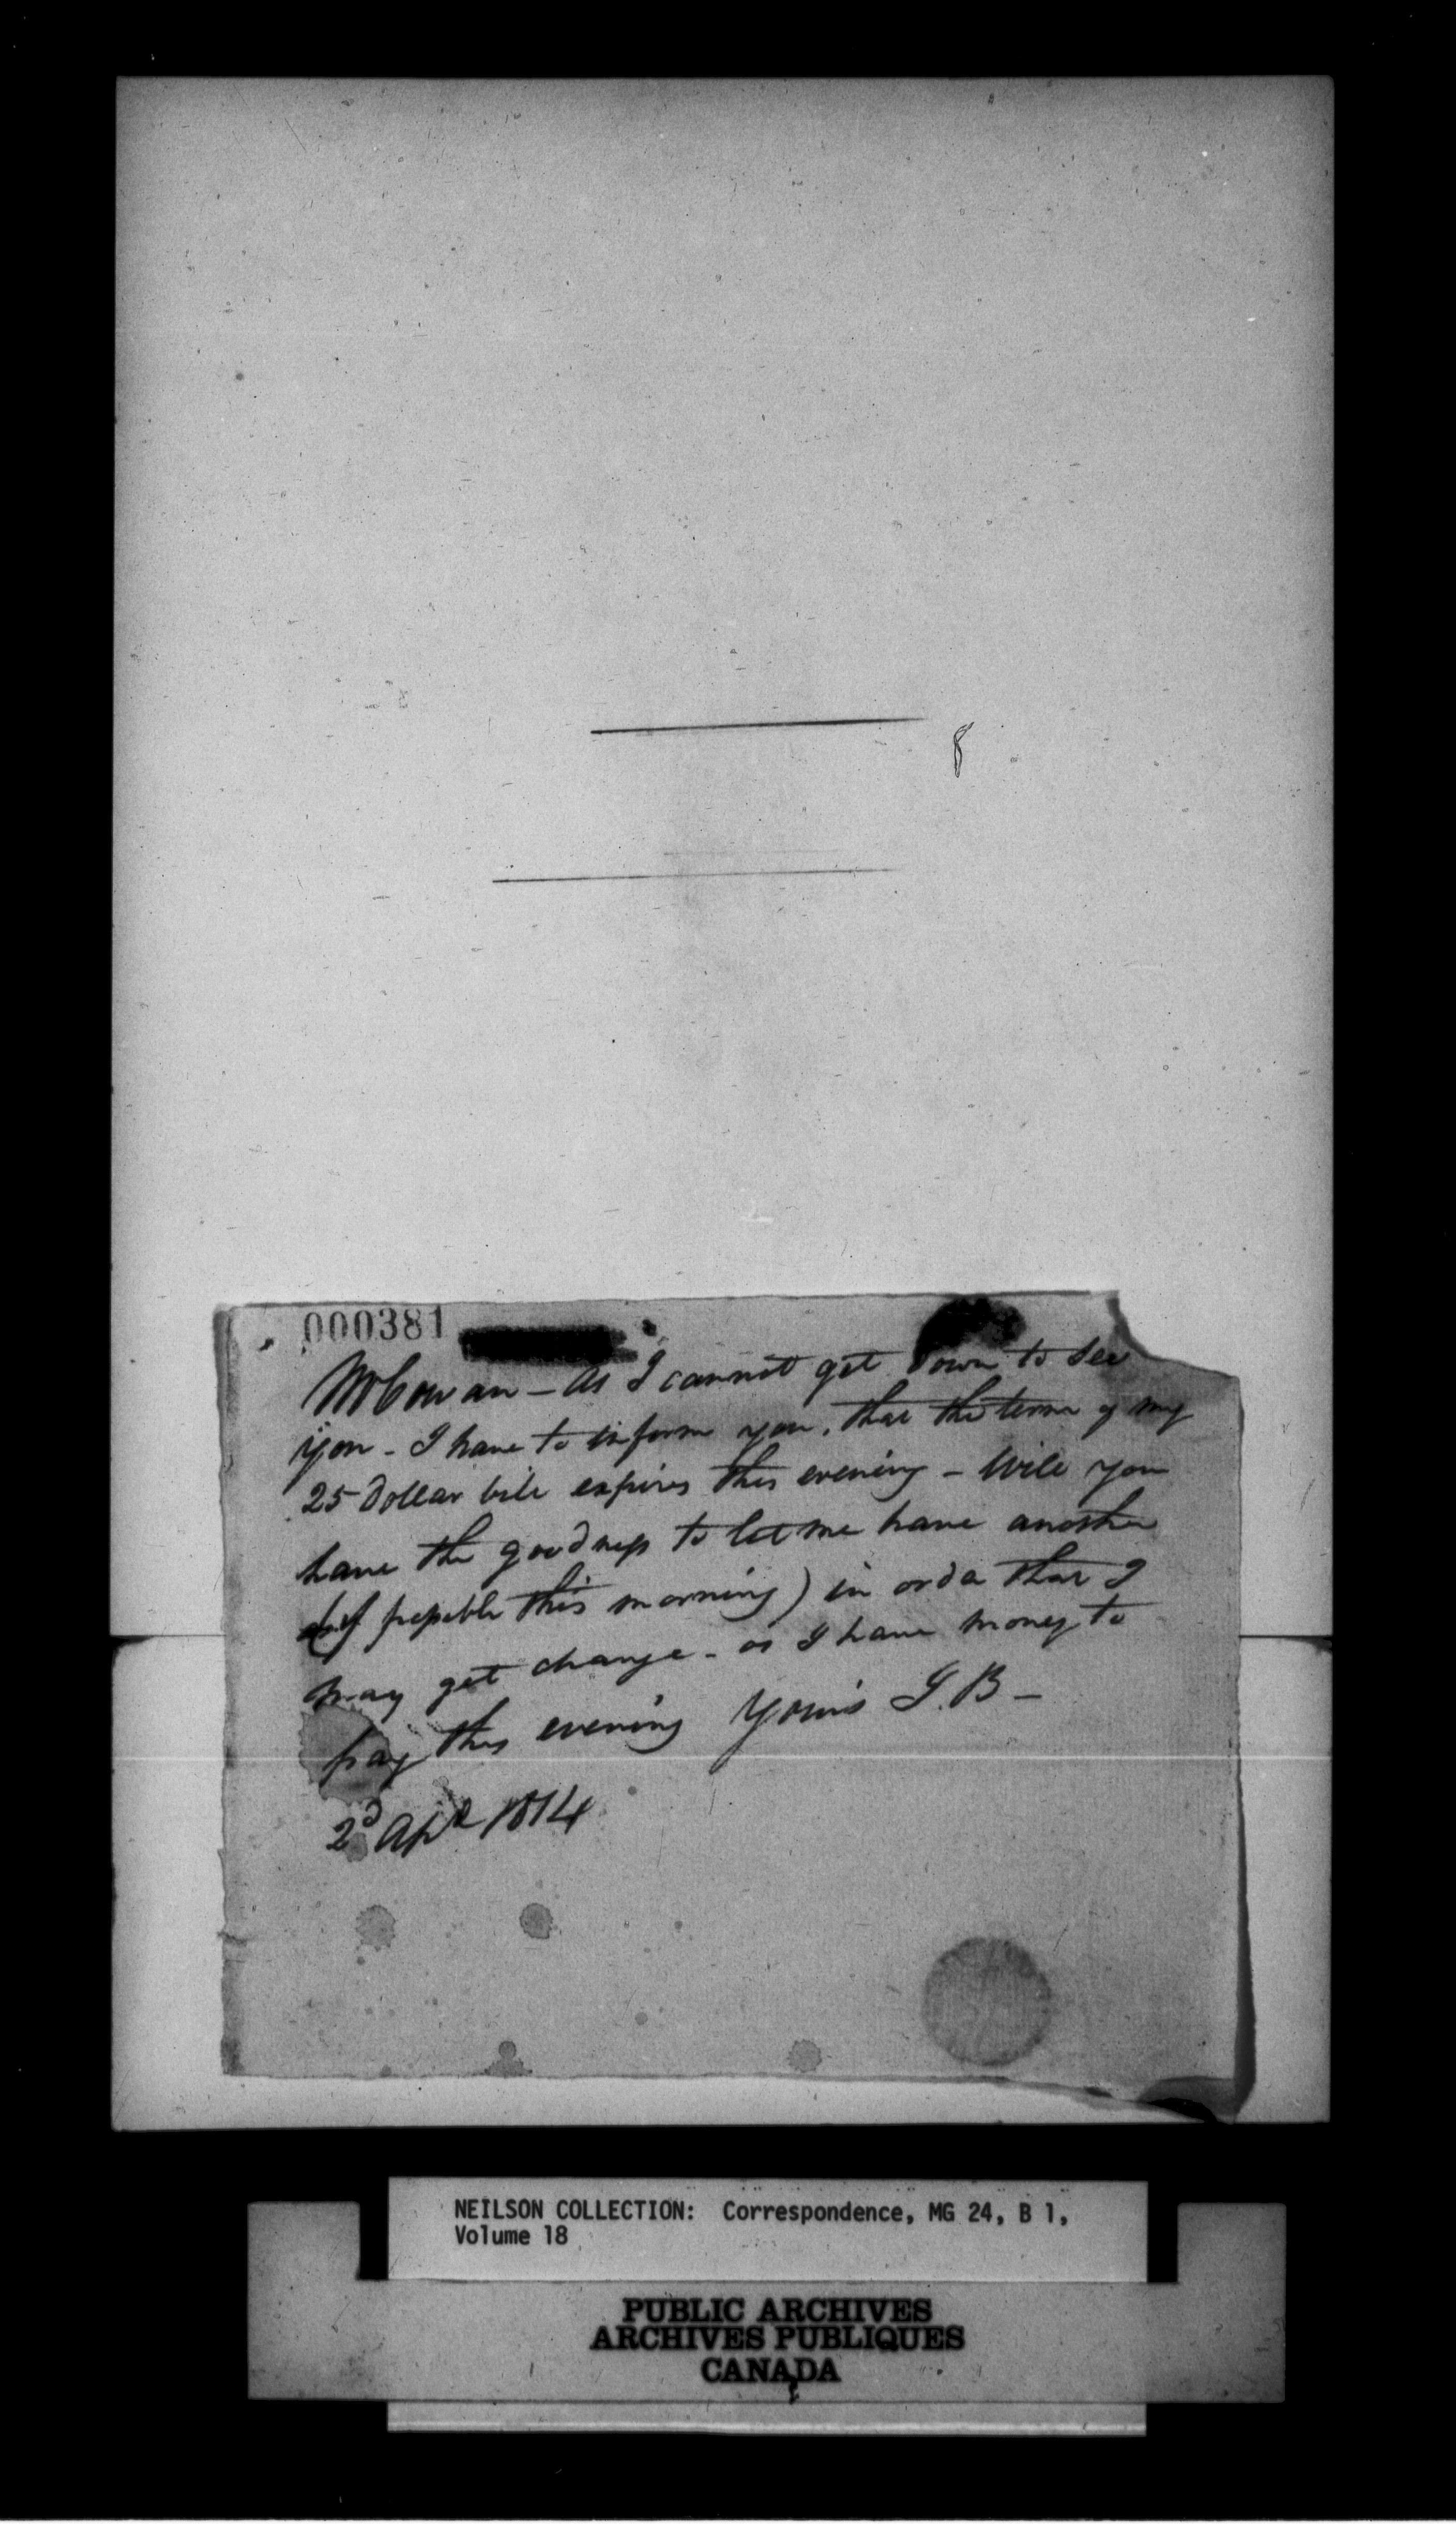 000381
Mr Cowan - as I cannot get down to see
you - I have to inform you, that the term of my
25 Dollar bill expires this evening - Will you
have the goodness to let me have another
(if possible this morning) in order that I
may get change - as I have money to
pay this evening Yours J. B -
2d Apl 1814
NEILSON COLLECTION: Correspondence, MG 24, B 1,
Volume 18
PUBLIC ARCHIVES
ARCHIVES PUBLIQUES
CANADA